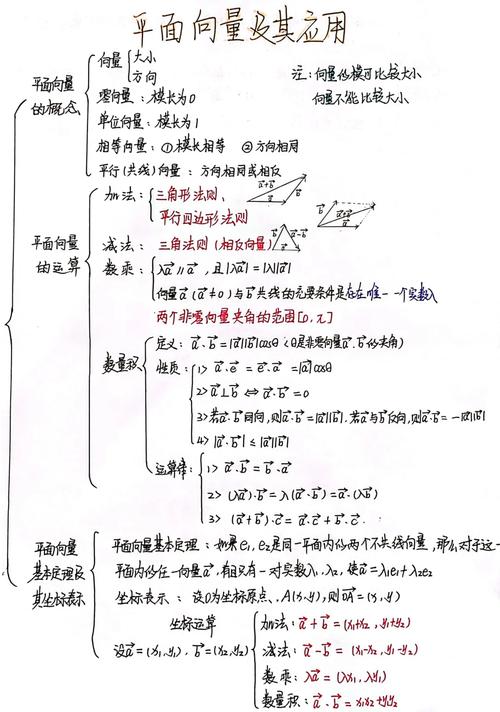 平面向量及其应用
平面向量的概念
向量
大小
方向
注：向量的模可比较大小
向量不能比较大小
零向量：模长为0
单位向量：模长为1
相等向量：①模长相等 ②方向相同
平行(共线)向量：方向相同或相反
平面向量的运算
加法：
三角形法则、
平行四边形法则
a⃗+b⃗
b⃗
a⃗
b⃗
a⃗+b⃗
a⃗
减法：三角法则(相反向量)
b⃗
a⃗-b⃗
a⃗
数乘：
λa⃗∥a⃗，且|λa⃗|=|λ||a⃗|
向量a⃗(a⃗≠0)与b⃗共线的充要条件是存在唯一一个实数λ
两个非零向量夹角的范围[0,π]
数量积
定义：a⃗·b⃗=|a⃗||b⃗|cosθ(θ是非零向量a⃗.b⃗的夹角)
性质：
1> a⃗·e⃗ = e⃗·a⃗ =|a⃗|cosθ
2> a⃗⊥b⃗ ⇔ a⃗·b⃗=0
3>若a⃗.b⃗同向，则a⃗·b⃗=|a⃗||b⃗|.若a⃗与b⃗反向，则a⃗·b⃗=-|a⃗||b⃗|
4> |a⃗·b⃗|≤|a⃗||b⃗|
运算律：
1> a⃗·b⃗=b⃗·a⃗
2> (λa⃗)·b⃗=λ(a⃗·b⃗)=a⃗·(λb⃗)
3> (a⃗+b⃗)·c⃗=a⃗·c⃗+b⃗·c⃗.
平面向量基本定理及其坐标表示
平面向量基本定理：如果e₁,e₂是同一平面内的两个不共线向量，那么对于这一
平面内的任一向量a⃗，有且只有一对实数λ₁、λ₂，使a⃗=λ₁e₁+λ₂e₂
坐标表示：设O为坐标原点、A(x,y),则OA⃗=(x,y)
坐标运算
设a⃗=(x₁,y₁)，b⃗=(x₂,y₂)
加法：a⃗+b⃗=(x₁+x₂,y₁+y₂)
减法：a⃗-b⃗=(x₁-x₂,y₁-y₂)
数乘：λa⃗=(λx₁,λy₁)
数量积：a⃗·b⃗=x₁x₂+y₁y₂